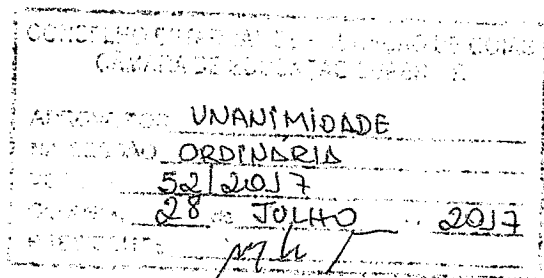 CONSELHO ESTADUAL DE EDUCAÇÃO DE GOIÁS
CÂMARA DE EDUCAÇÃO SUPERIOR
APROVADO POR UNANIMIDADE
NA SESSÃO ORDINARIA
52/2017
GOIÂNIA, 28 de JULHO 2017
PRESIDENTE